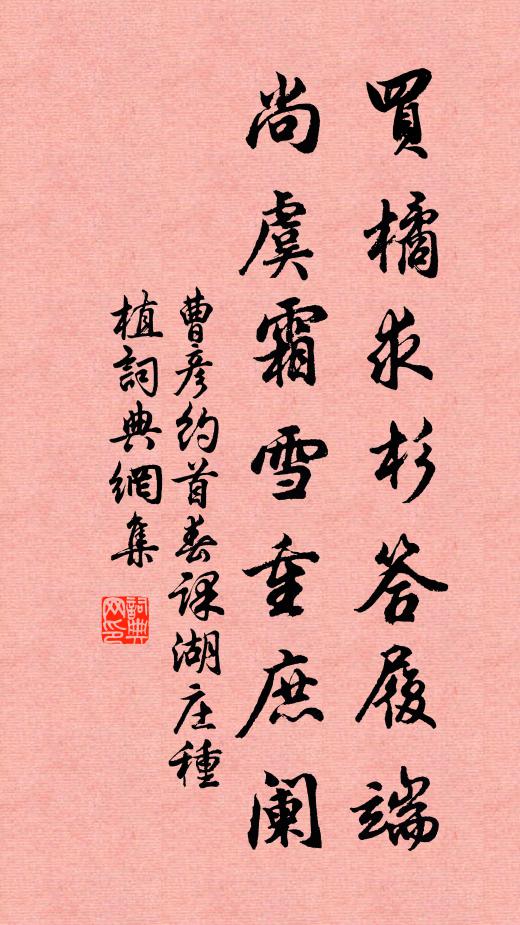 買橘求杉答履端
尚虞霜雪重庶闌
曹彥約首春課湖庄種
植詞典網集
詞典网印